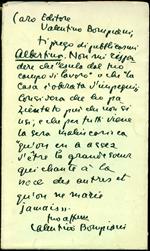 Caro Editore
Valentino Bompiani,
ti prego di pubblicarmi
Albertina. Non mi
dere che "esula dal tuo
campo di lavoro" o che "la
Casa
Considera che ho pa
zientato più che non si
usi; e che per tutti viene
la sera malinconica
"qu'on en a assez
d'être la grand'sœur
qui chante à la
noce des autres et
qu'on ne marie
jamais...
tuo
Valentino Bompiani